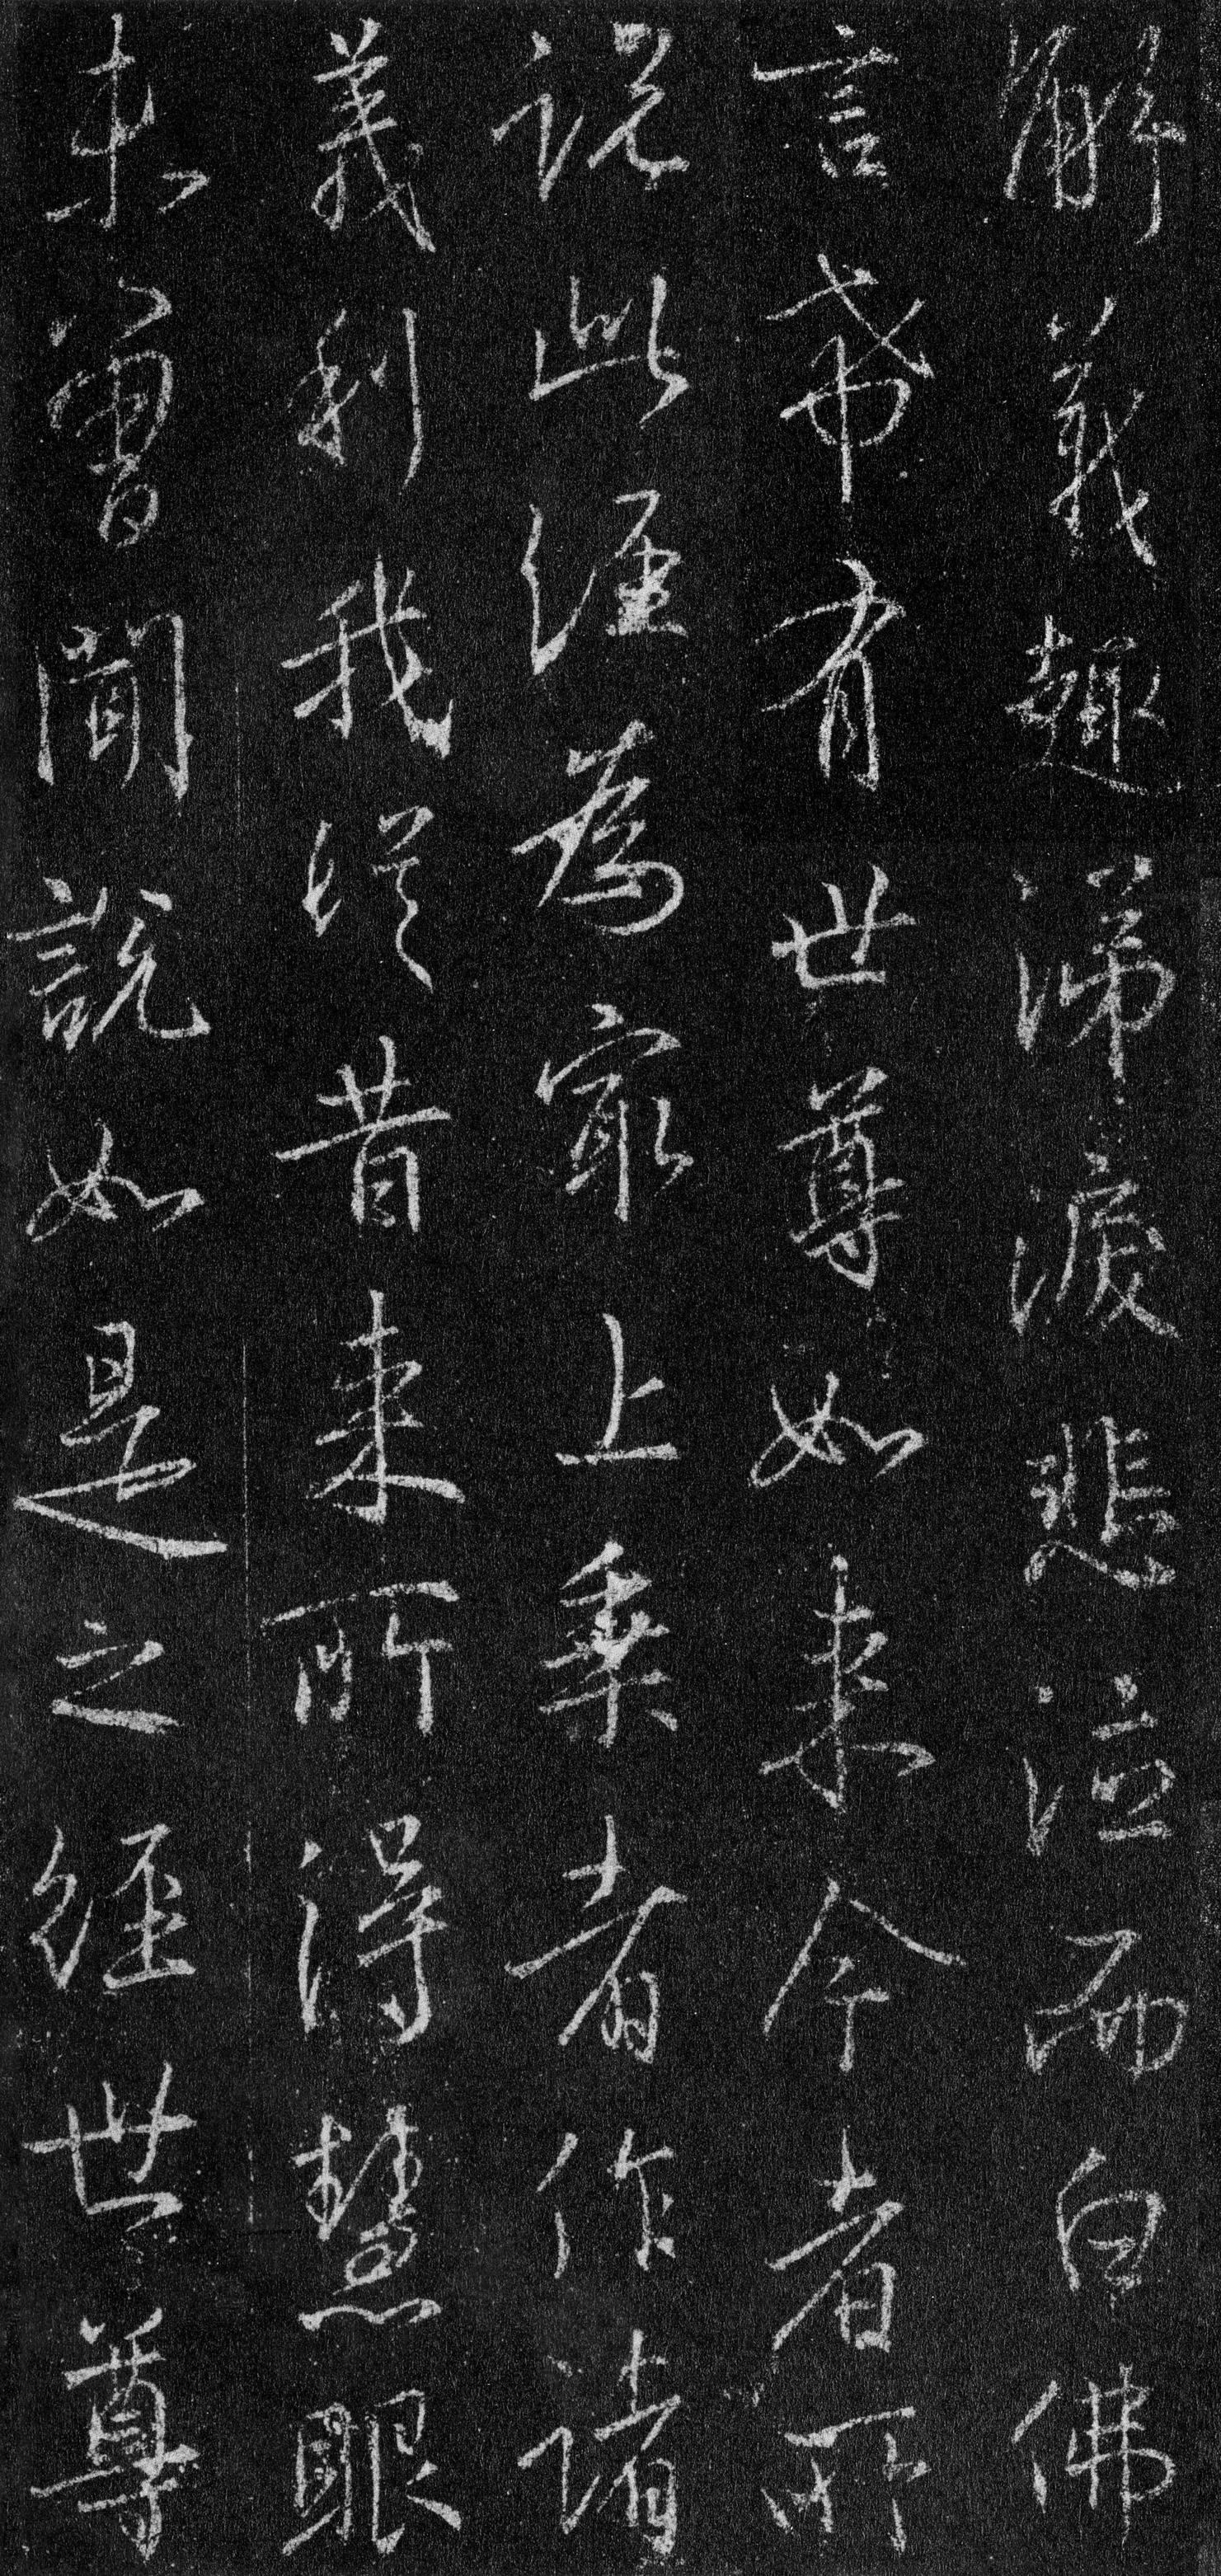 解義趣涕淚悲泣而白佛
言希有世尊如來今者所
說此經為最上乘者作諸
義利我從昔來所得慧眼
未曾聞說如是之經世尊